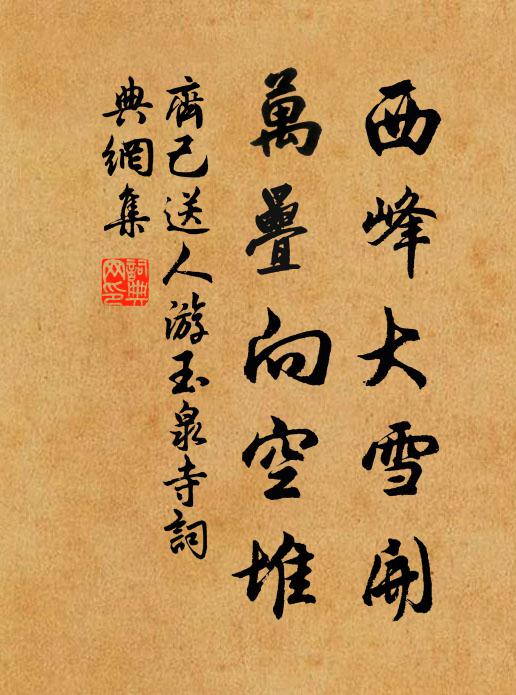 西峰大雪開
萬疊向空堆
齊己送人游玉泉寺詞
典網集
詞典网印